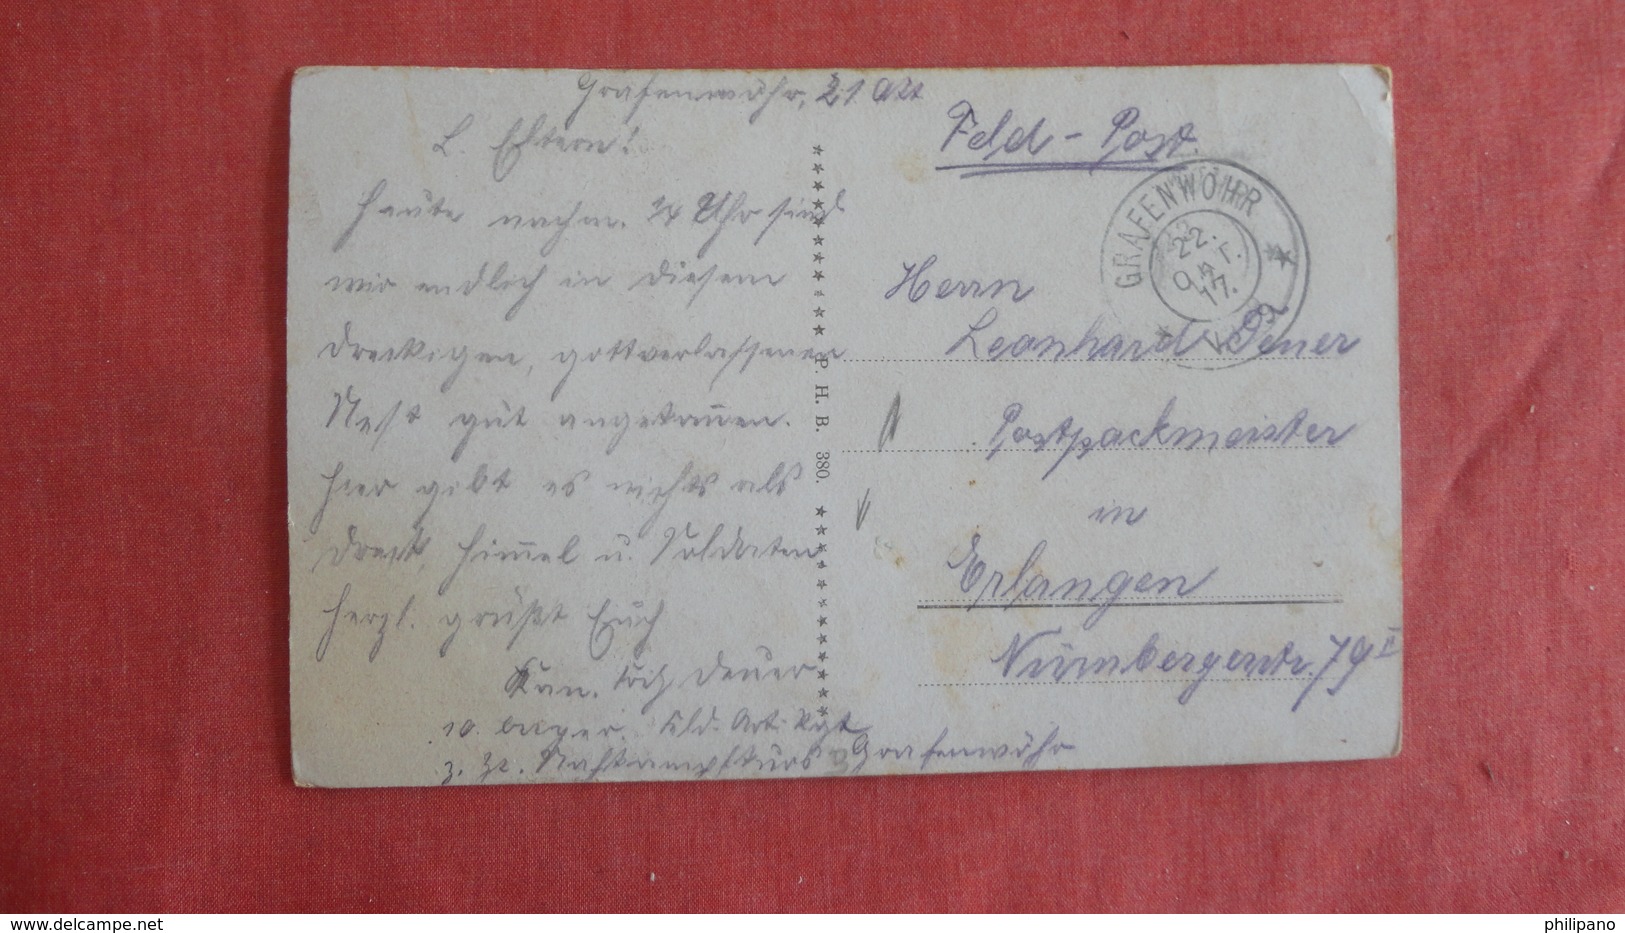 Grafenwöhr, 21. Okt
L. Eltern!
Heute nachm. 1/4 Uhr sind
wir endlich in diesem
dreckigen, gottverlassenen
Nest gut angekom̅en.
Hier gibt es nichts als
Dreck, Him̅el u. Soldaten
Herzl. grüßt Euch
Kan. Deuer
10. bayer. Feld. Art. Rgt
z. Zt. Nahkampfkurs Grafenwöhr
Feld-Post.
GRAFENWÖHR
22.
OKT.
17.
Herrn
Leonhard Deuer
Postpackmeister
in
Erlangen
Nürnbergerstr. 79 I
P. H. B. 380.
delcampe.net
philipano